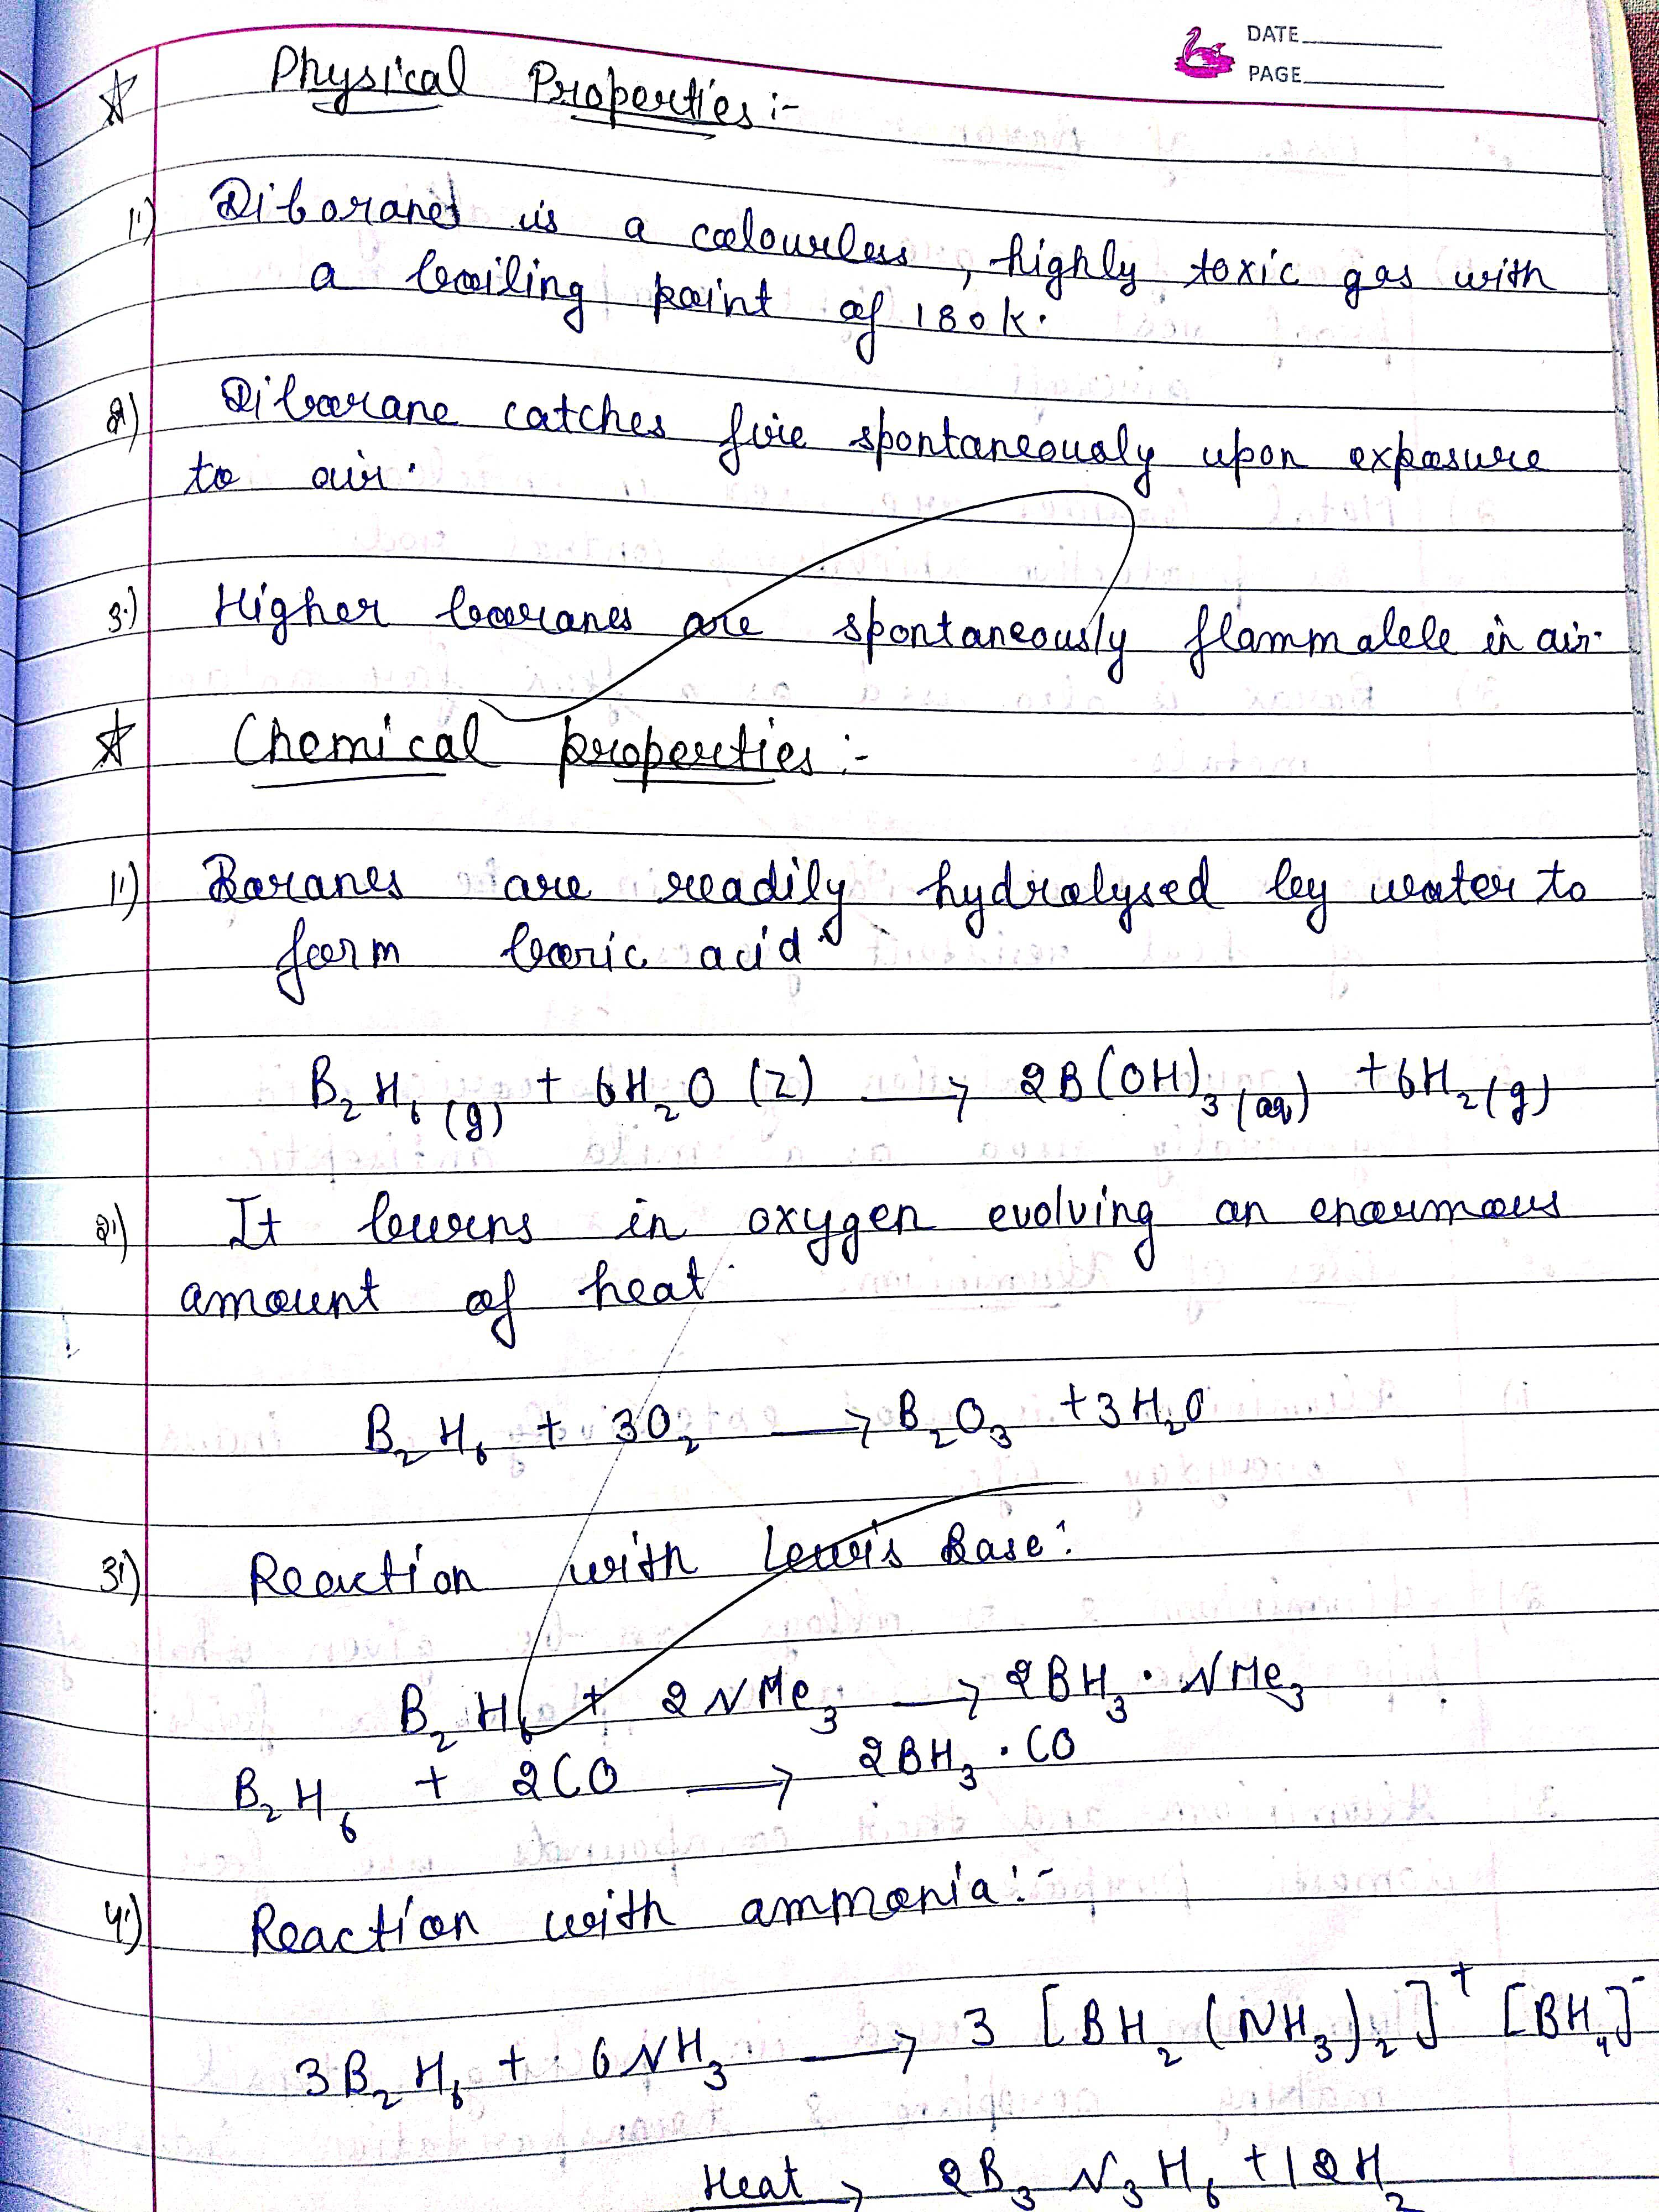 DATE
PAGE
Physical Properties :-
1) Diborane is a colourless, highly toxic gas with
a boiling point of 180 K.
2) Diborane catches fire spontaneously upon exposure
to air.
3) Higher boranes are spontaneously flammable in air.
Chemical properties :-
1) Boranes are readily hydrolysed by water to
form boric acid.
B₂H₆(g) + 6H₂O (l) → 2B(OH)₃(aq) + 6H₂(g)
2) It burns in oxygen evolving an enormous
amount of heat.
B₂H₆ + 3O₂ → B₂O₃ + 3H₂O
3) Reaction with Lewis Base:
B₂H₆ + 2NMe₃ → 2BH₃·NMe₃
B₂H₆ + 2CO → 2BH₃·CO
4) Reaction with ammonia:-
3B₂H₆ + 6NH₃ → 3[BH₂(NH₃)₂]⁺[BH₄]⁻
Heat → 2B₃N₃H₆ + 12H₂